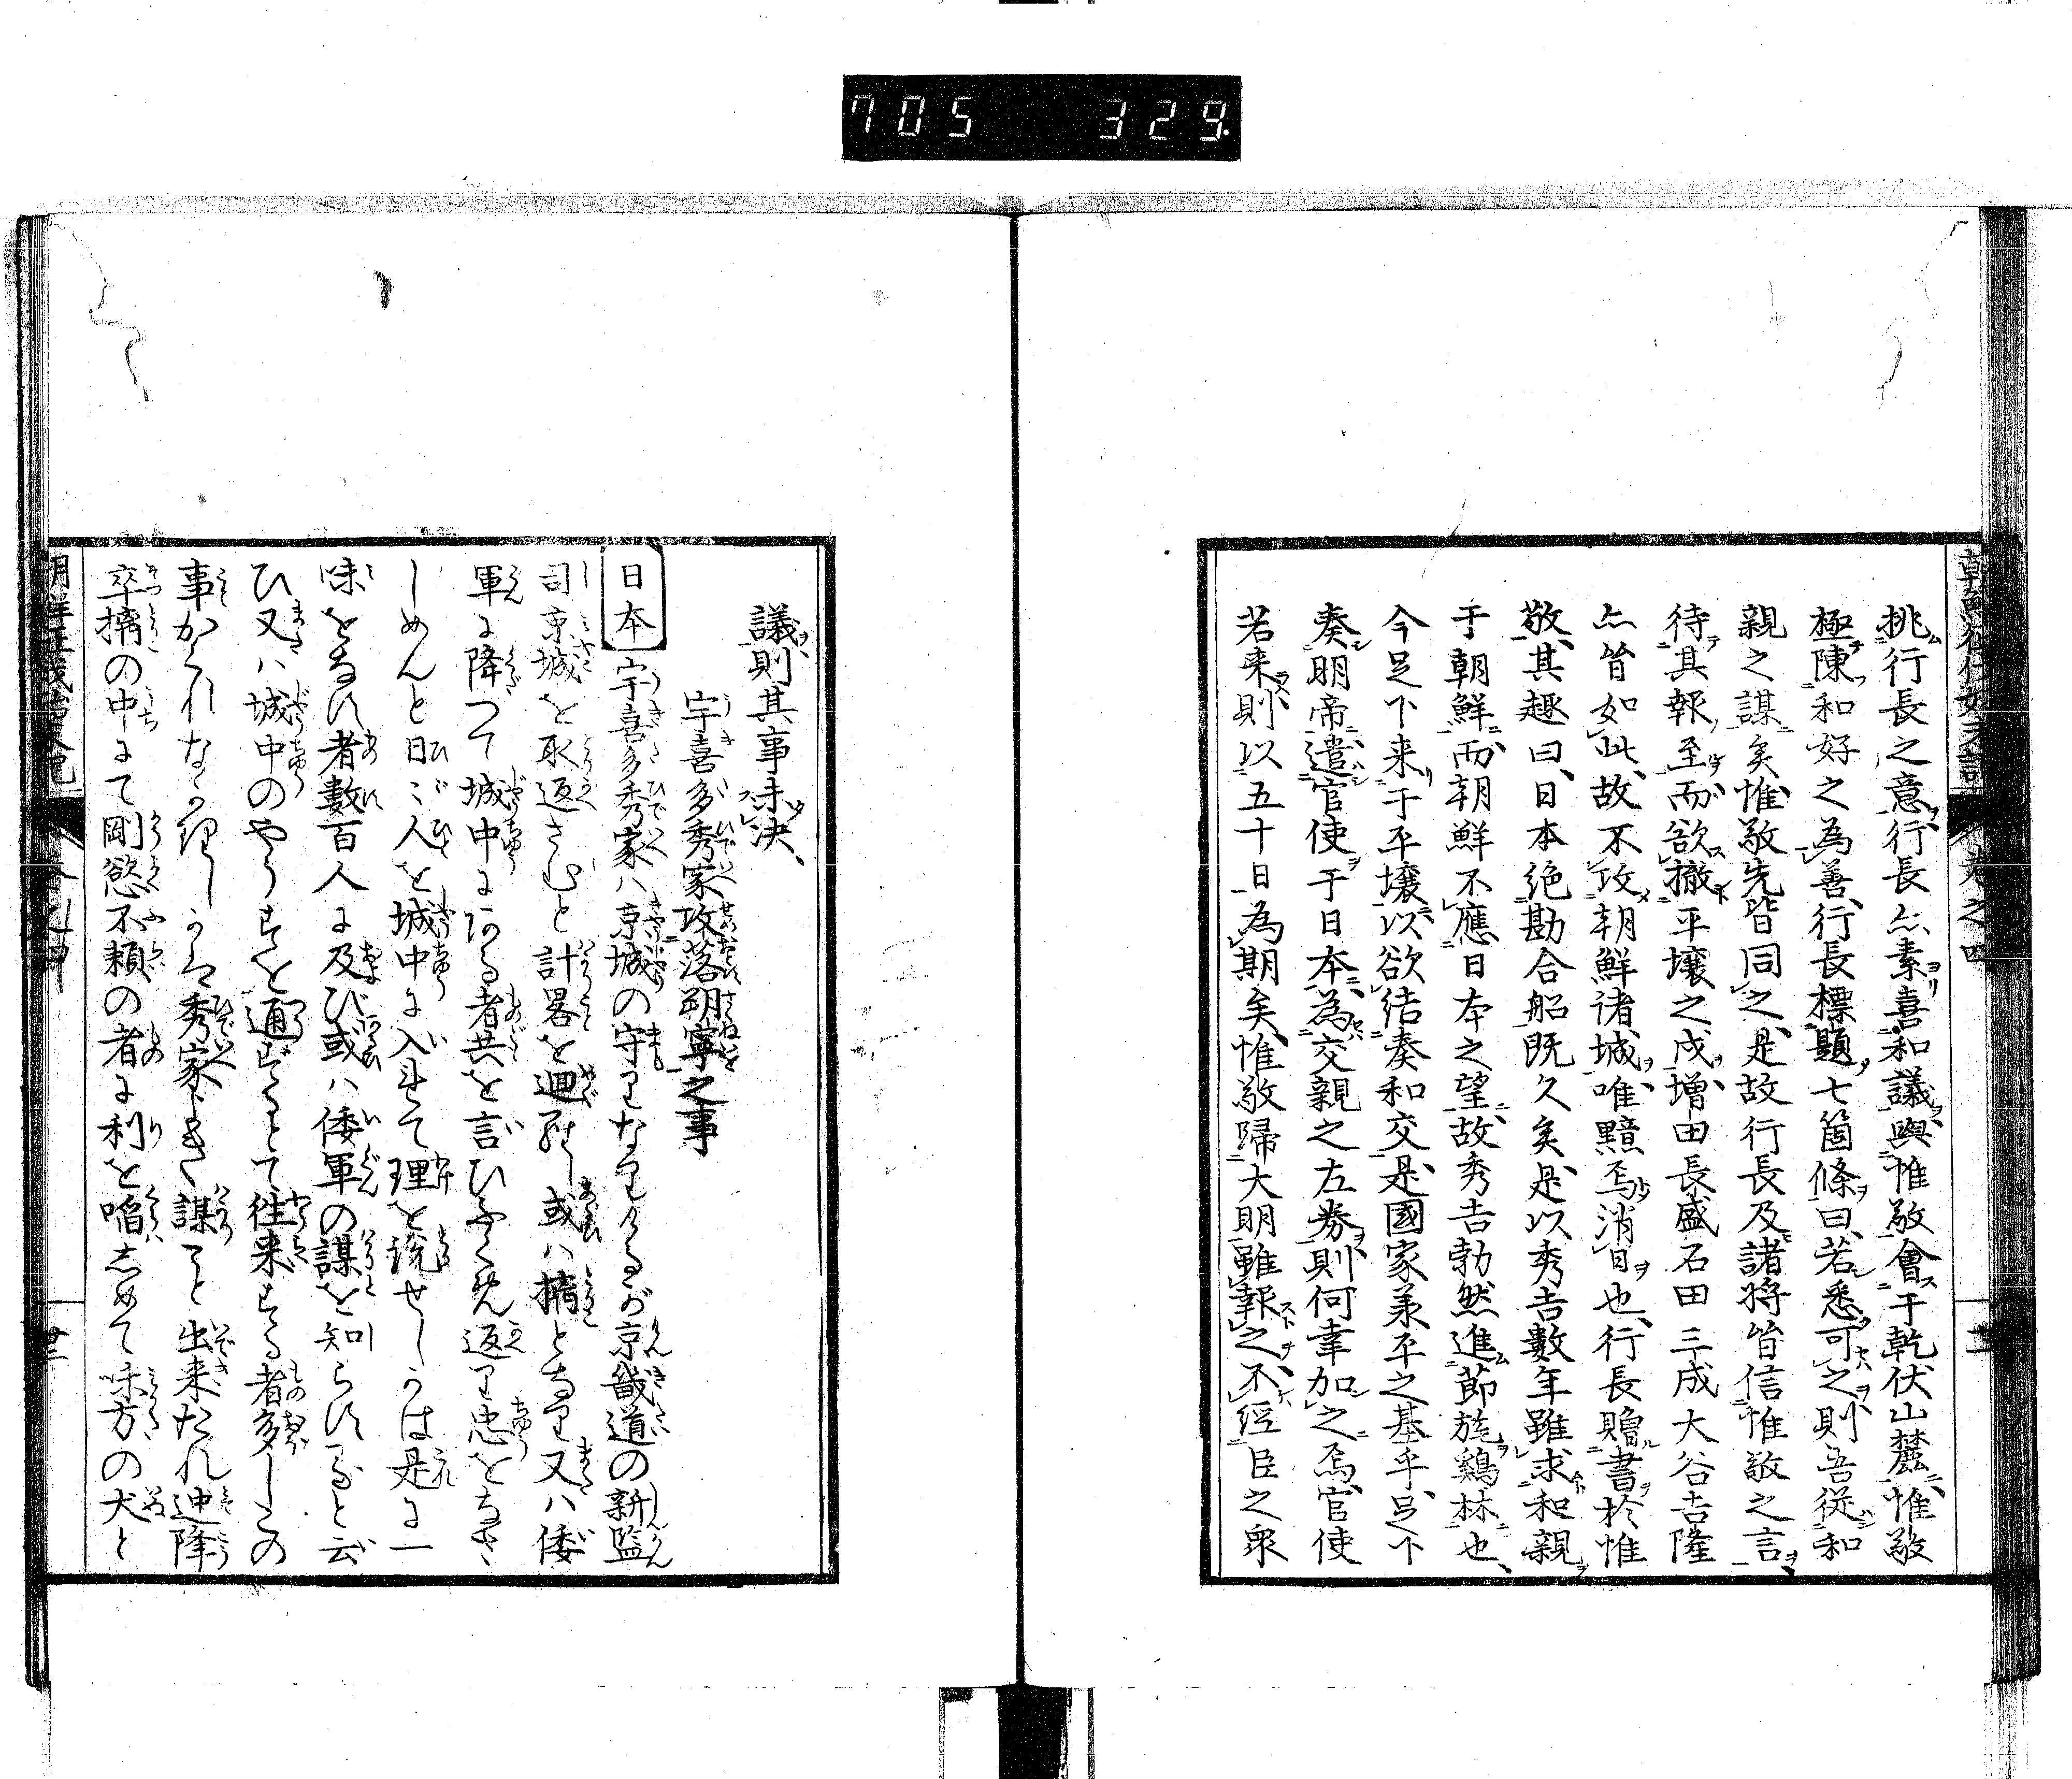 705 329
挑行長之意行長亦素喜和議與惟敬會于乾伏山麓惟敬
極陳和好之為善行長標題七箇條曰若悉可之則吾従和
親之謀矣惟敬先皆同之是故行長及諸将皆信惟敬之言
待其報至而欲撤平壌之戍増田長盛石田三成大谷吉隆
亦皆如此故不攻朝鮮諸城唯黯焉消日也行長贈書於惟
敬其趣曰日本絶勘合船既久矣是以秀吉數年雖求和親
于朝鮮而朝鮮不應日本之望故秀吉勃然進節旄鷄林也
今足下来于平壌以欲結奏和交是國家兼平之基乎足下
奏明帝遣官使于日本為交親之左券則何幸加之焉官使
若来則以五十日為期矣惟敬歸大明雖報之不経臣之衆
議則其事未決
宇喜多秀家攻落朔寧之事
日本 宇喜多秀家ハ京城の守りなりけるが京畿道の新監
司京城を取返さむと計畧を廻らし或ハ擒となり又ハ倭
軍に降つて城中にある者共を言ひふくめ返り忠をなさ
しめんと日ゞ人を城中に入れて理を説せしかは是に一
味をなす者數百人に及び或ハ倭軍の謀を知らすると云
ひ又ハ城中のやうすを通ずるとて往来する者多しこの
事かくれなかりしかは秀家もきゝ謀こと出来たれ迚降
卒擒の中にて剛慾不頼の者に利を啗しめて味方の犬と
巻之四